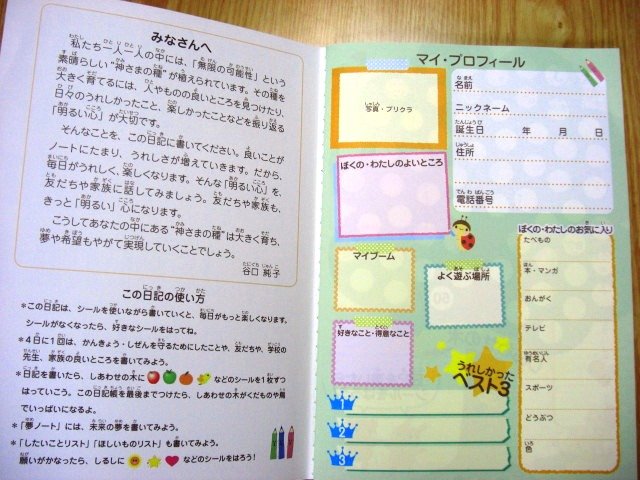 みなさんへ
私たち一人一人の中には、「無限の可能性」という
素晴らしい“神さまの種”が植えられています。その種を
大きく育てるには、人やものの良いところを見つけたり、
日々のうれしかったこと、楽しかったことなどを振り返る
「明るい心」が大切です。
そんなことを、この日記に書いてください。良いことが
ノートにたまり、うれしさが増えていきます。だから、
毎日がうれしく、楽しくなります。そんな「明るい心」を、
友だちや家族に話してみましょう。友だちや家族も、
きっと「明るい」心になります。
こうしてあなたの中にある“神さまの種”は大きく育ち、
夢や希望もやがて実現していくことでしょう。
谷口 純子
この日記の使い方
*この日記は、シールを使いながら書いていくと、毎日がもっと楽しくなります。
シールがなくなったら、好きなシールをはってね。
*4日に1回は、かんきょう・しぜんを守るためにしたことや、友だちや、学校の
先生、家族の良いところを書いてみよう。
*日記を書いたら、しあわせの木に などのシールを1枚ずつ
はっていこう。この日記帳を最後までつけたら、しあわせの木がくだものや鳥
でいっぱいになるよ。
*「夢ノート」には、未来の夢を書いてみよう。
*「したいことリスト」「ほしいものリスト」も書いてみよう。
願いがかなったら、しるしに などのシールをはろう!
マイ・プロフィール
写真・プリクラ
名前
ニックネーム
誕生日 年 月 日
住所
電話番号
ぼくの・わたしのよいところ
マイブーム
よく遊ぶ場所
好きなこと・得意なこと
うれしかった
ベスト3
1
2
3
ぼくの・わたしのお気に入り
たべもの
本・マンガ
おんがく
テレビ
有名人
スポーツ
どうぶつ
色